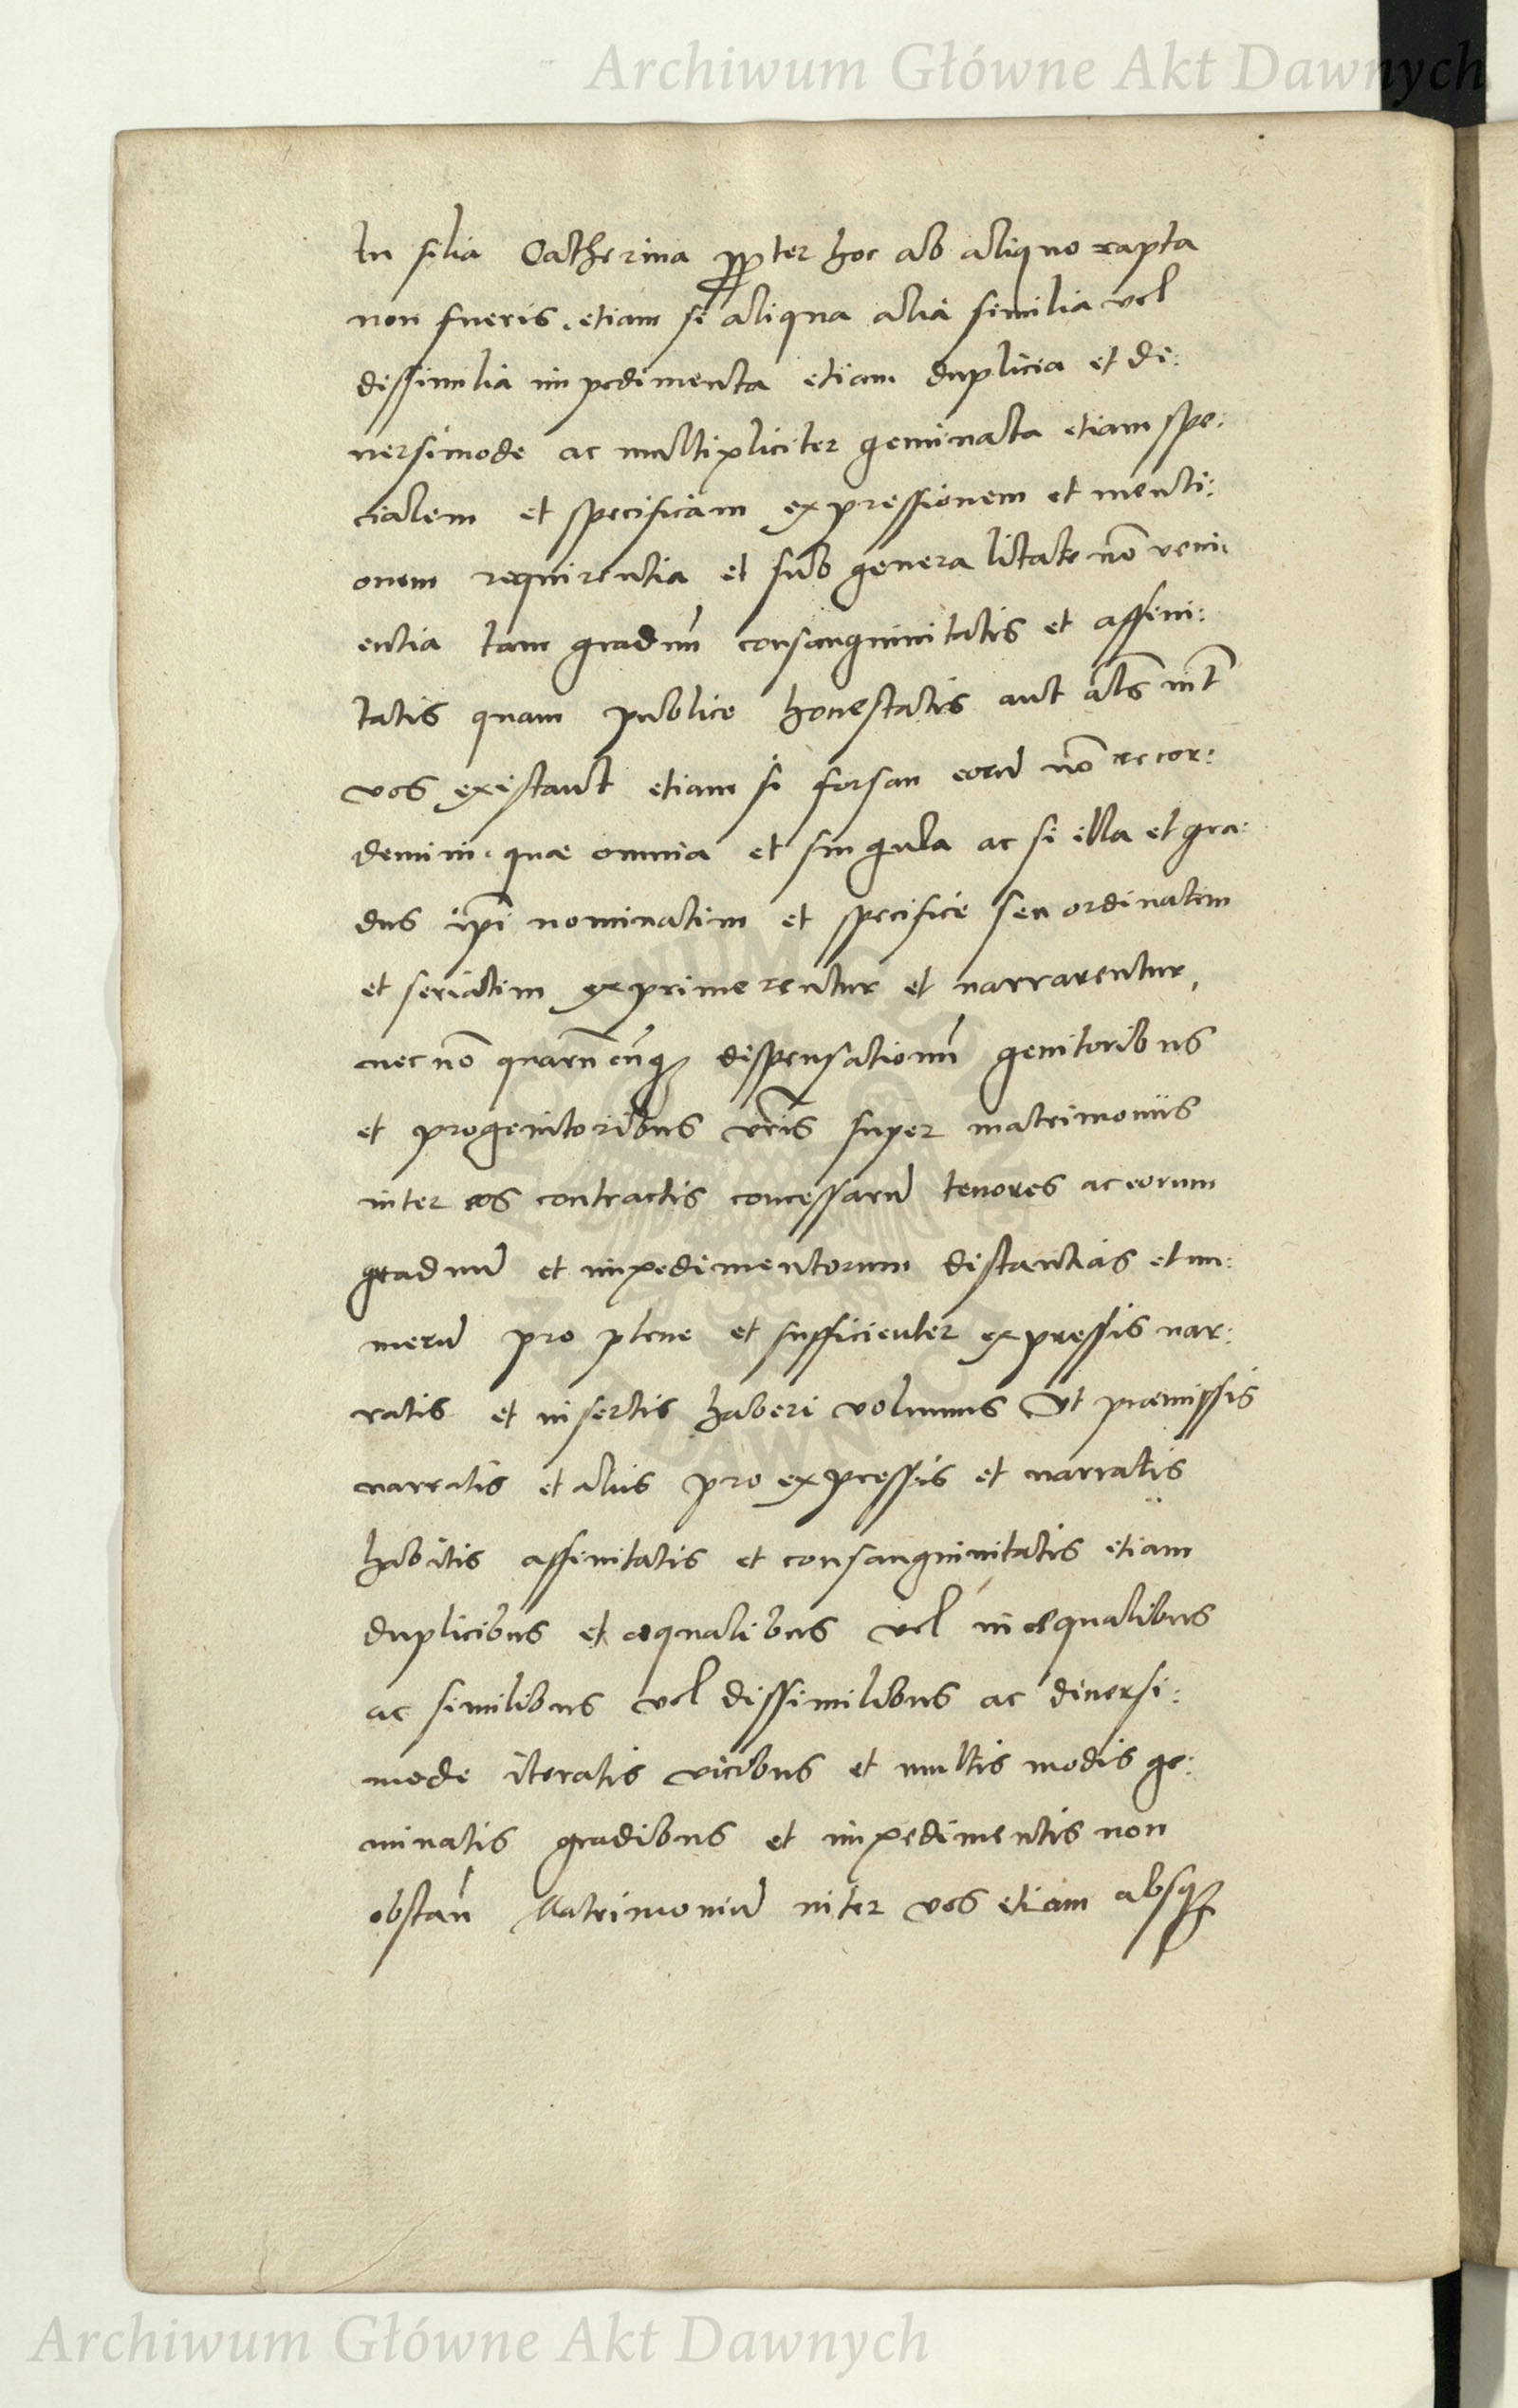 Archiwum Główne Akt Dawnych
tu filia Catherina propter hoc ab aliquo rapta
non fueris. etiam si aliqua alia similia vel
dissimilia impedimenta etiam duplicia et di:
uersimode ac multipliciter geminata etiam spe:
cialem et specificam expressionem et menti:
onem requirentia et sub generalitate nō veni:
entia tam graduū consanguinitatis et affini:
tatis quam publice honestatis aut als int
vos existant etiam si forsan eorū nō recor:
demini. quæ omnia et singula ac si illa et gra:
dus ip̄i nominatim et specifice seu ordinatim
et seriatim exprimerentur et narrarentur,
nec nō quarūcūq; dispensationū genitoribus
et progenitoribus vr̄is super matrimoniis
inter eos contractis concessarū tenores ac eorum
graduū et impedimentorum distantias et nu:
merū pro plene et sufficienter expressis nar:
ratis et insertis haberi volumus Vt præmissis
narratis et aliis pro expressis et narratis
habitis affinitatis et consanguinitatis etiam
duplicibus et æqualibus vel inæqualibus
ac similibus vel dissimilibus ac diuersi:
mode iteratis vicibus et multis modis ge:
minatis gradibus et impedimentis non
obstan̄ Matrimoniū inter vos etiam absq;
Archiwum Główne Akt Dawnych